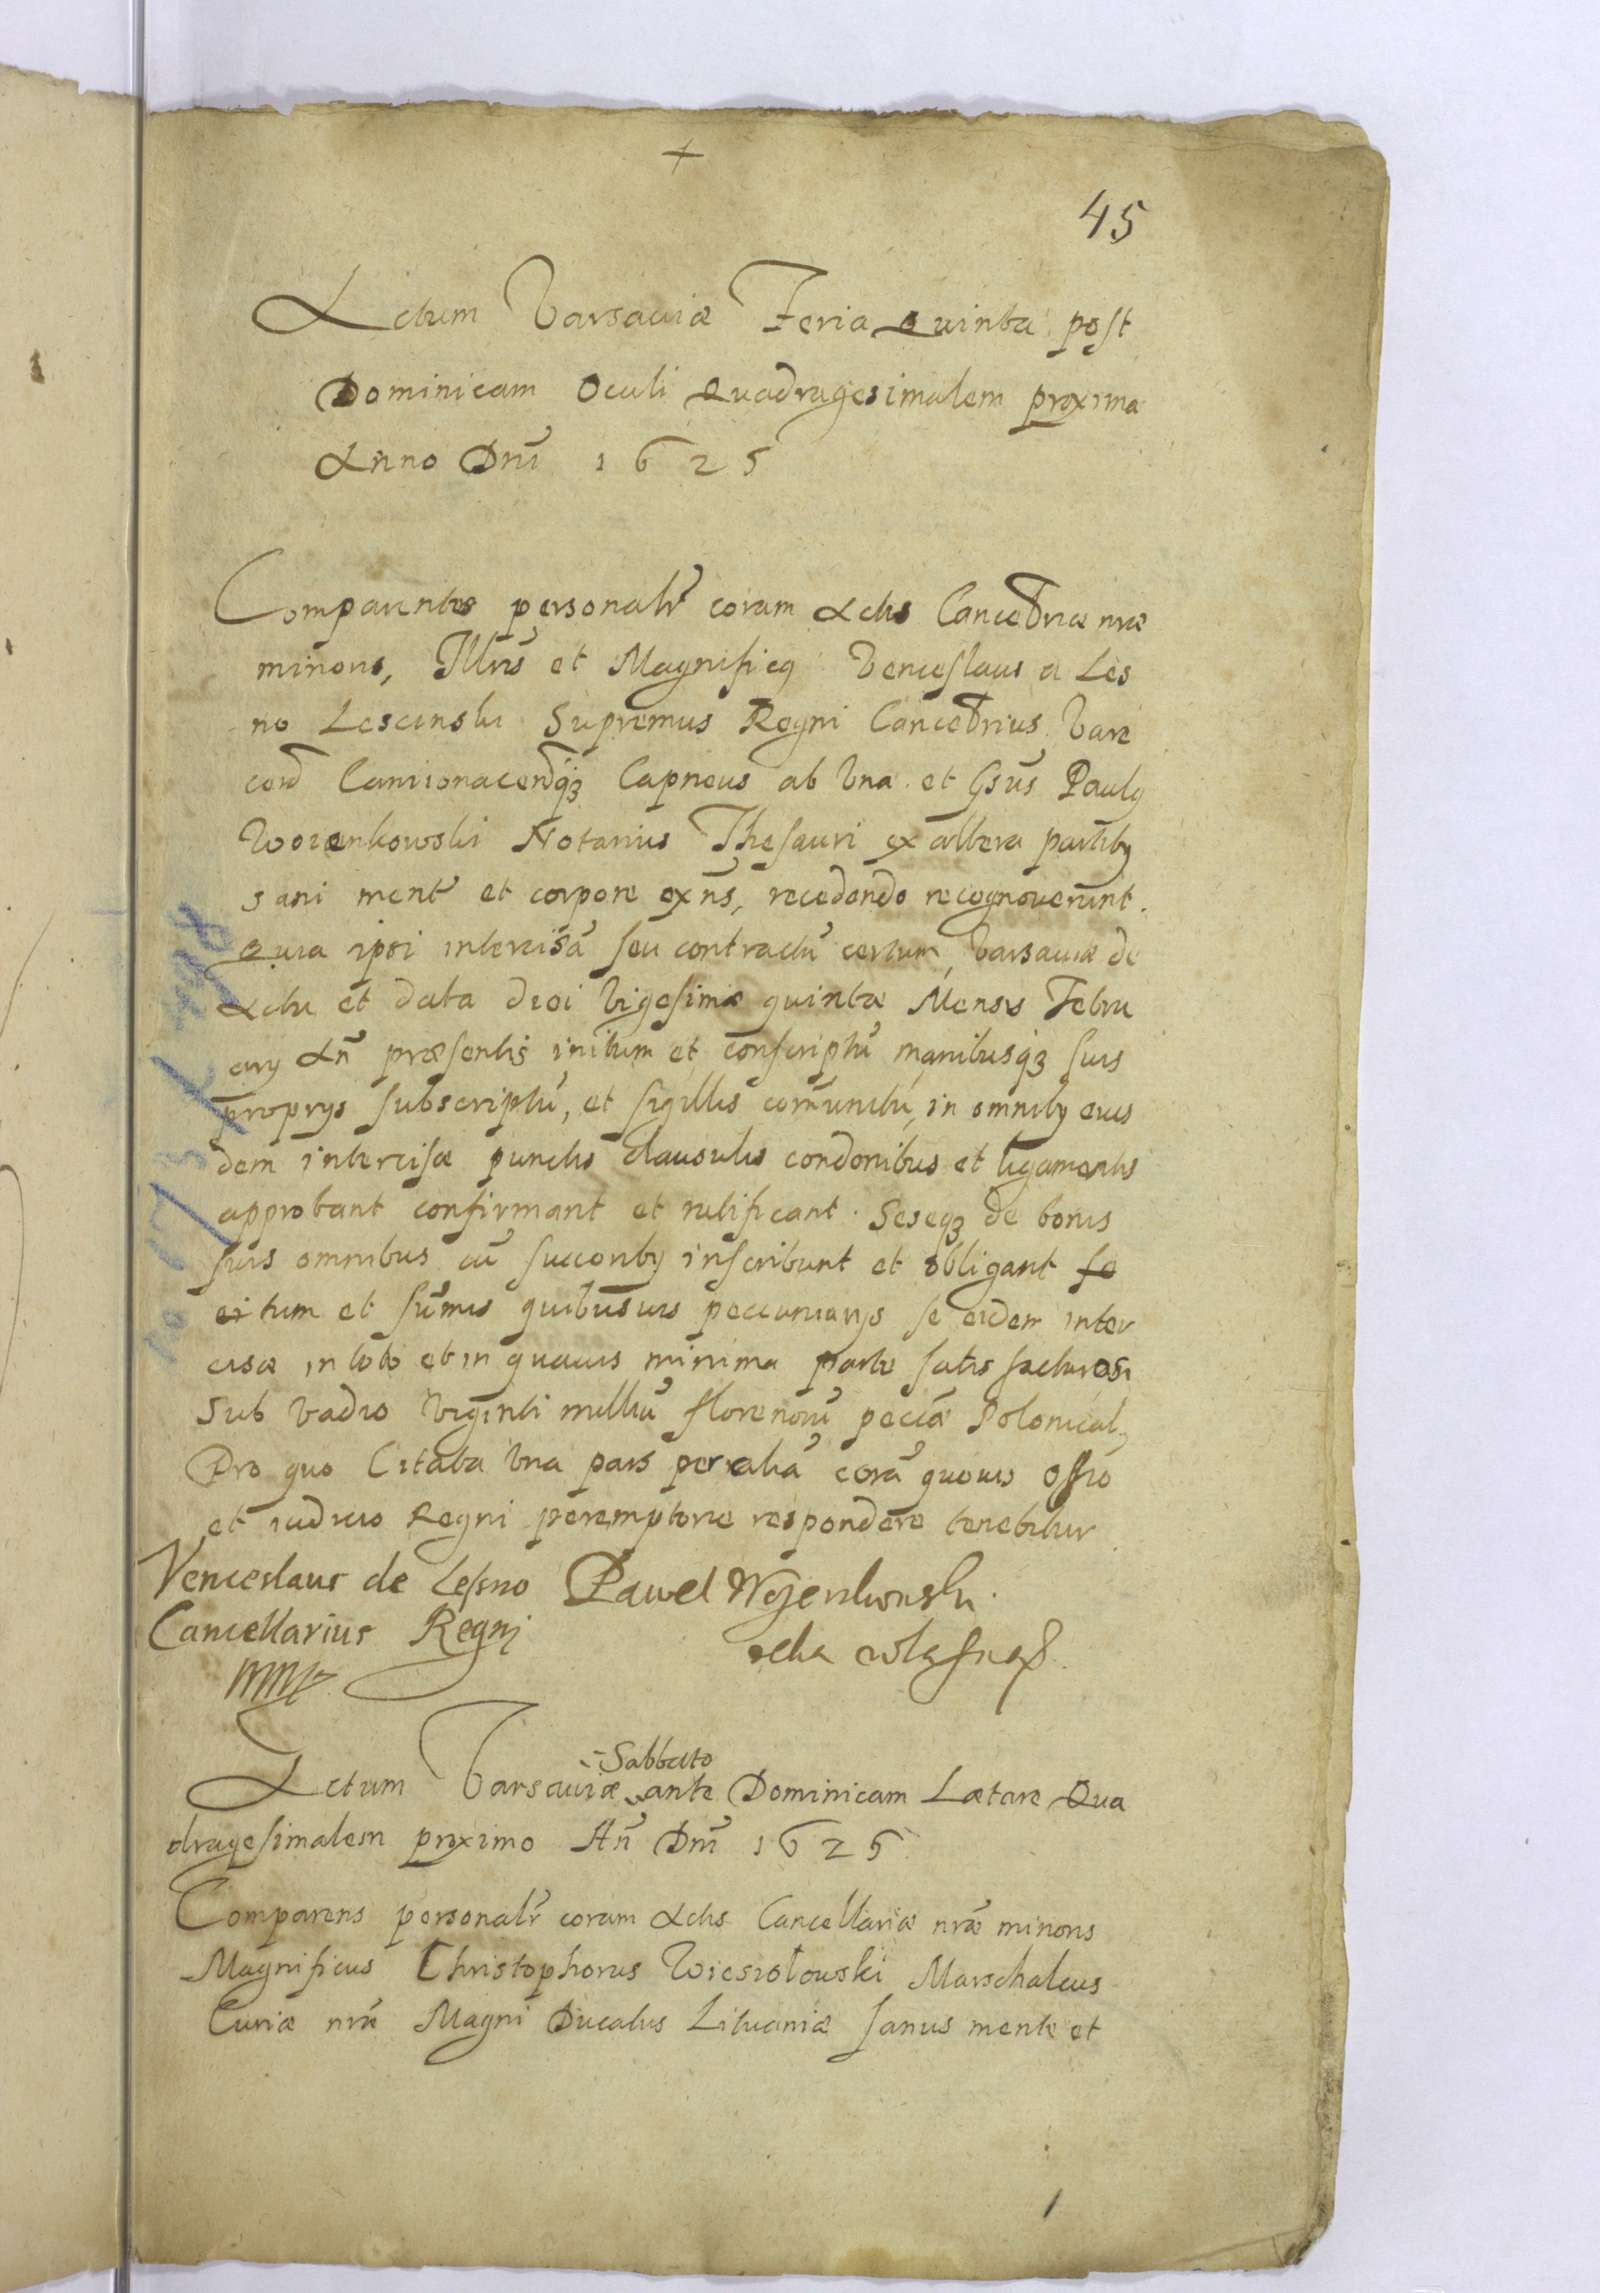 45
Actum Varsauiæ Feria Quinta post
Dominicam Oculi Quadragesimalem proxima
Anno Dni 1625
Comparentes personalr coram Actis Cancellriæ nræ
minoris, Illris et Magnificq Venceslaus a Les
no Lescinski Supremus Regni Cancellrius Vare
Capneus ab Vna et Gsus Paulq
Wozenkowski Notarius Thesauri ex altera partibq
sani mente et corpore exns, recedendo recognouerunt.
Quia ipsi intercisa seu contractu certum, Varsauiæ de
Actu et data diei Vigesimæ quintæ Mensis Febru
ary An præsentis initum et conscriptu manibusqz suis
proprys subscriptu, et sigillis comunitu, in omnibq eius
dem intercisæ punctis clausulis condonibus et ligamentis
approbant confirmant et ratificant. Seseqz de bonis
suis omnibus cu succonbq inscribunt et obligant se
citum et sumis quibusuis peccuniarys se eidem inter
cisæ in toto et in quauis minima parte satis facturos
Sub Vadio Viginti milliu florenoru peciæ Polonical
Pro quo Citata Vna pars per alia cora quouis Offio
et iudicio Regni peremptorie respondere tenebitur
Venceslaus de Lesno Pawel Wozenkowski
Cancellarius Regni
mp
ręka własną
Sabbato
Actum Varsauiæ ante Dominicam Lætare Qua
dragesimalem proximo An Dni 1625
Comparens personalr coram Actis Cancellariæ nræ minoris
Magnificus Christophorus Wiesiołowski Marschalcus
Curiæ nræ Magni Ducatus Lituaniæ sanus mente et